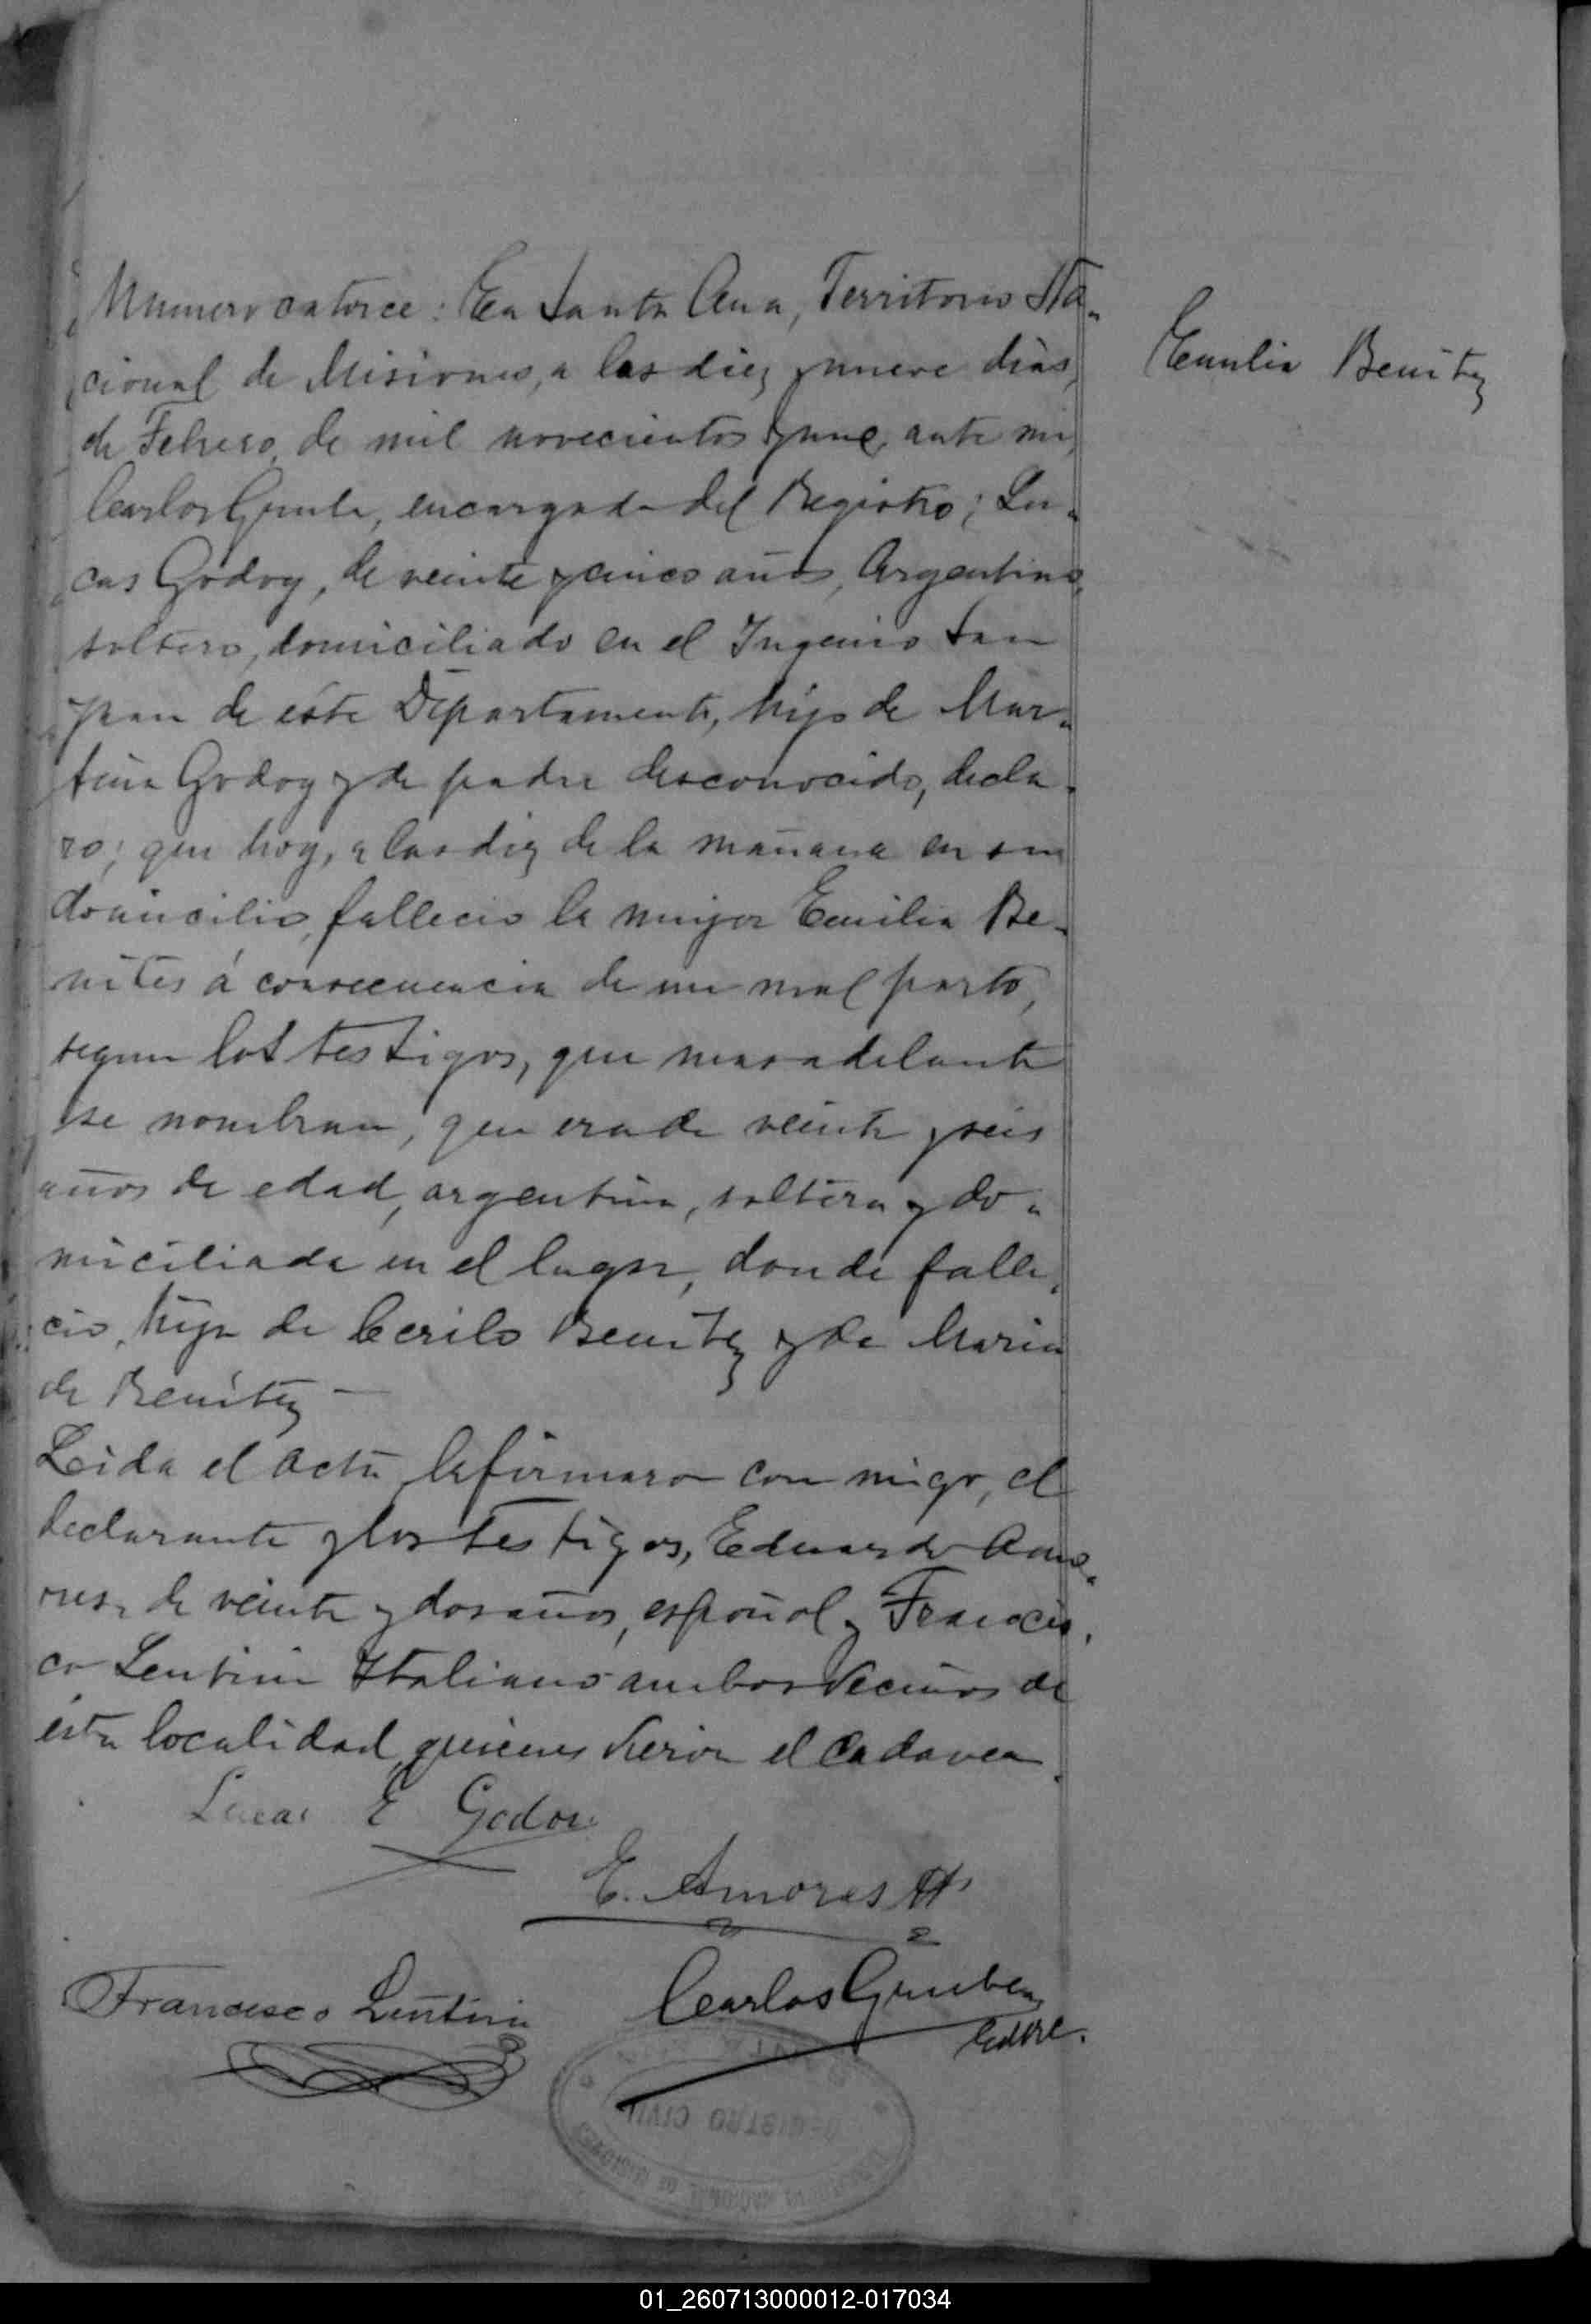 Numero catorce: En Santa Ana, Territorio Na-
cional de Misiones, a los diez y nueve dias,
de Febrero, de mil novecientos y une, ante mi,
Carlos Grube, encargado del Registro; Lu-
cas Godoy, de veinte y cinco años, Argentino,
soltero, domiciliado en el Ingenio San
Juan de éste Departamento, hijo de Mar-
tina Godoy y de padre desconocido, decla-
ro; que hoy, a las diez de la mañana en su
domicilio, fallecio la mujer Emilia Be-
nites á consecuencia de un mal parto,
segun los testigos, que mas adelante
se nombran, que era de veinte y seis
años de edad, argentina, soltera y do-
miciliada en el lugar, donde falle-
cio, hija de Cerilo Benitez y de Maria
de Benitez —
Leida el acta, la firmaron con migo, el
declarante y los Testigos, Eduardo Amo-
res, de veinte y dos años, español y Francis-
co Lentini Italiano ambos vecinos de
ésta localidad, quienes vieron el cadaver.
Lucas E Godoy
E. Amores
Francisco Lentini
Carlos Gruber
REGISTRO CIVIL
NACIONAL DE MISIONES
Emilia Benitez
01_260713000012-017034